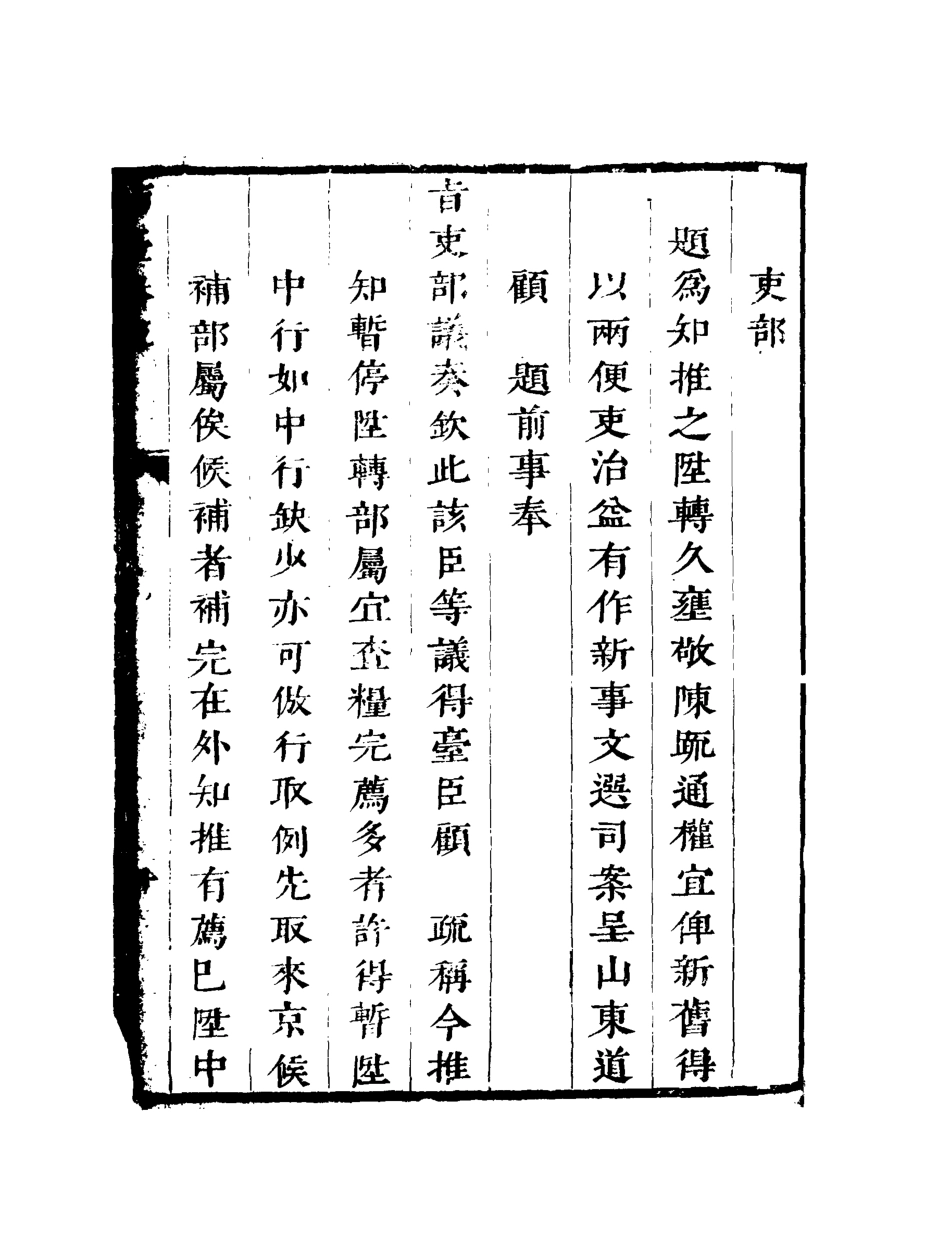 吏部
題為知推之陞轉久壅敬陳疏通權宜俾新舊得
以兩便吏治益有作新事文選司案呈山東道
顧　題前事奉
旨吏部議奏欽此該臣等議得臺臣顧　疏稱今推
知暫停陞轉部屬宜查糧完薦多者許得暫陞
中行如中行缺少亦可倣行取例先取來京候
補部屬俟候補者補完在外知推有薦已陞中